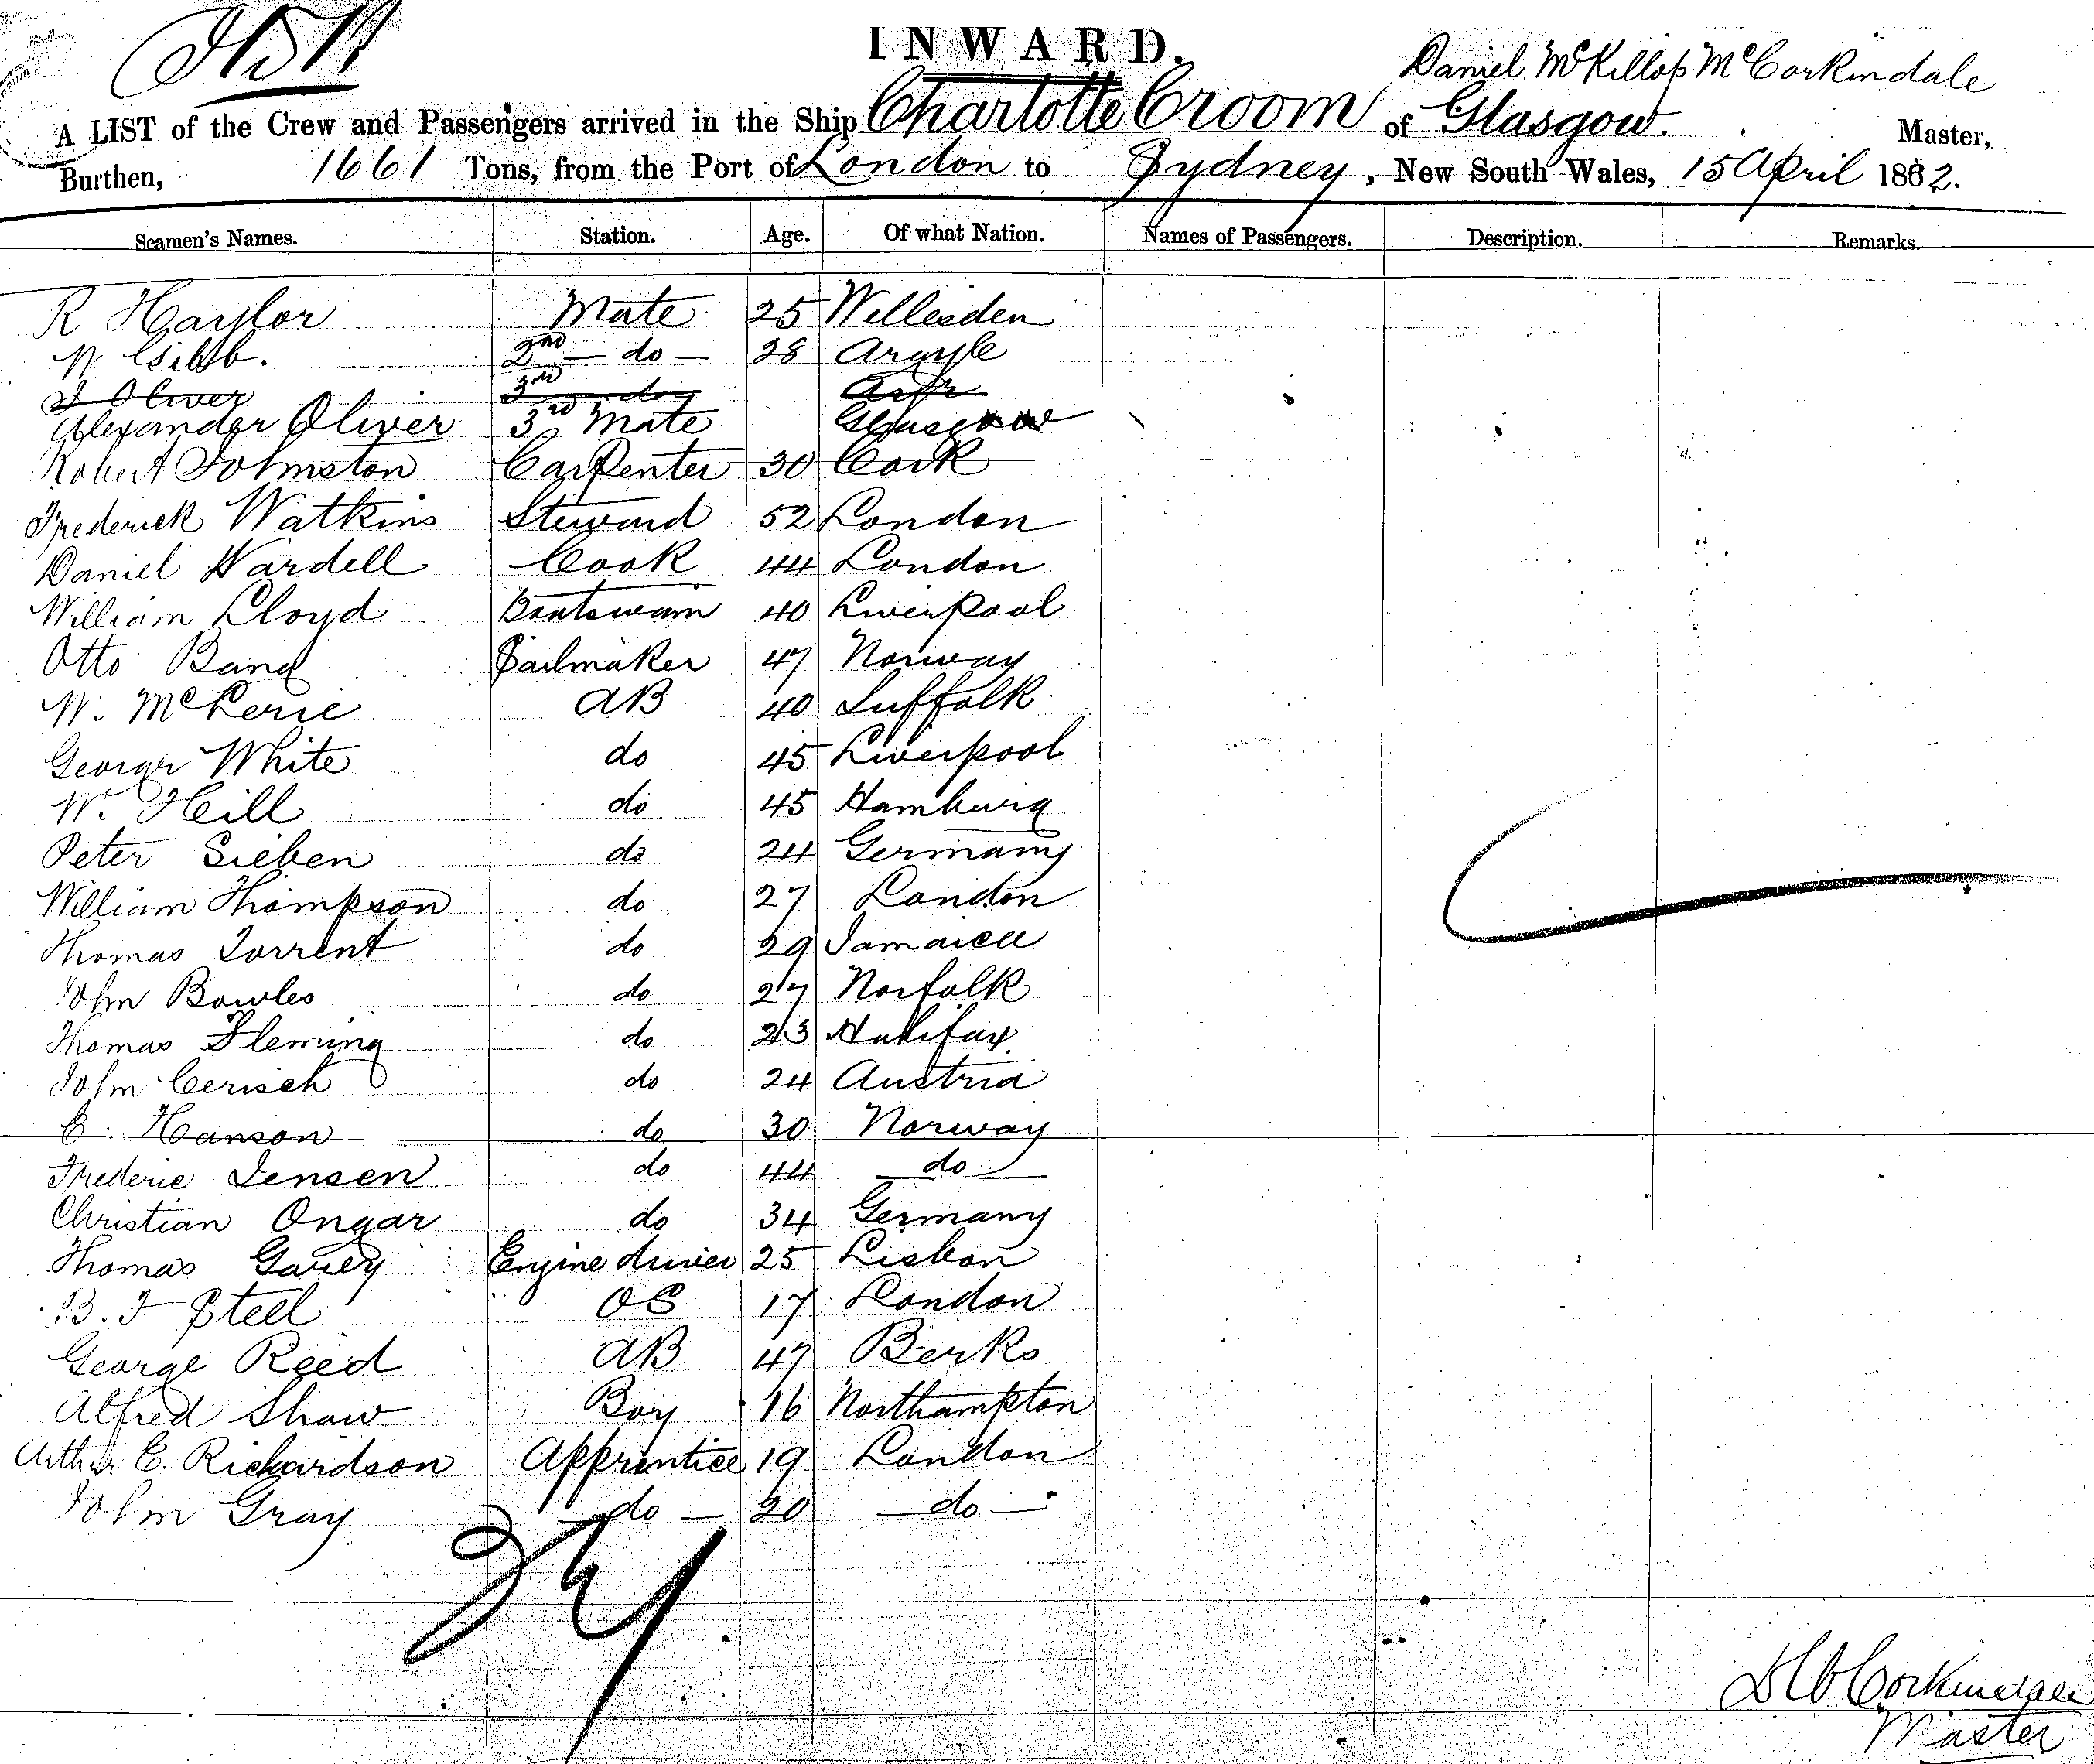 INWARD.
Daniel McKillop McCorkindale
A LIST of the Crew and Passengers arrived in the Ship Charlotte Croom of Glasgow. Master,
Burthen, 1661 Tons, from the Port of London to Sydney, New South Wales, 15 April 1882.
Seamen's Names. Station. Age. Of what Nation. Names of Passengers. Description. Remarks.
R Haylor Mate 25 Willesden
W Gibb. 2nd — do — 28 Argyle
Oliver 3rd do
Alexander Oliver 3rd Mate Glasgow
Robert Johnston Carpenter 30 Cork
Frederick Watkins Steward 52 London
Daniel Wardell Cook 44 London
William Lloyd Boatswain 40 Liverpool
Otto Bang Sailmaker 47 Norway
W. McKerie AB 40 Suffolk
George White do 45 Liverpool
W. Hill do 45 Hamburg
Peter Sieben do 24 Germany
William Thompson do 27 London
Thomas Torrent do 29 Jamaica
John Bowles do 27 Norfolk
Thomas Fleming do 23 Halifax
John Cerisch do 24 Austria
C. Hanson do 30 Norway
Frederic Jensen do 44 do
Christian Ongar do 34 Germany
Thomas Garey Engine driver 25 Lisbon
B. F Steel OS 17 London
George Reed AB 47 Berks
Alfred Shaw Boy 16 Northampton
Arthur E. Richardson Apprentice 19 London
John Gray — do — 20 — do —
McCorkindale
Master